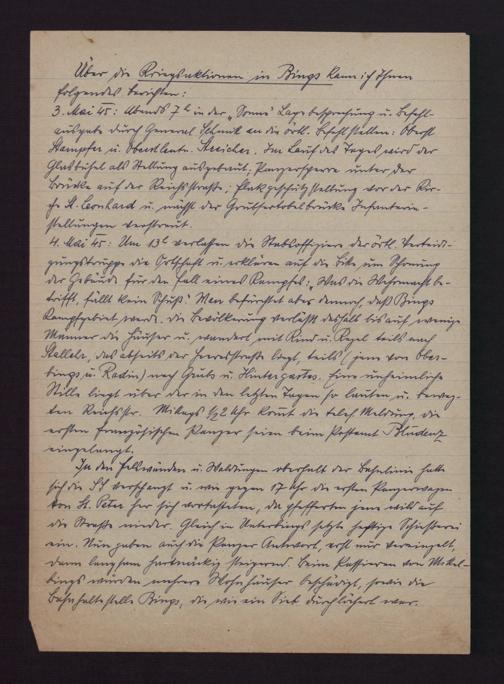 Über die Kriegsaktionen in Bings kann ich Ihnen
folgendes berichten:
3. Mai 45: Abends 7h in der „Sonne" Lagebesprechung u. Befehl-
ausgabe durch General Schmit an die örtl. Befehlstellen: Oberst
Stampfer u. Oberstleutn. Streicher. Im Lauf des Tages wird der
Glasbühel als Stellung ausgebaut; Panzersperre unter der
Brücke auf der Reichsstraße; Pakgeschützstellung vor der Kir-
che St. Leonhard u. nächst der Grubsertobelbrücke Infanterie-
stellungen verstreut.
4. Mai 45: Um 13h verlassen die Stabsoffiziere der örtl. Verteidi-
gungstruppe die Ortschaft u. erklären auf die Bitte um Schonung
der Gebäude für den Fall eines Kampfes: „Was die Wehrmacht be-
trifft, fällt kein Schuß." Man befürchtet aber dennoch, daß Bings
Kampfgebiet werde. Die Bevölkerung verläßt deshalb bis auf wenige
Männer die Häuser u. wandert mit Kind u. Kegel teils nach
Stallehr, das abseits der Heerstraße liegt, teils (jene von Ober-
bings u. Radin) nach Grubs u. Hintergastes. Eine unheimliche
Stille liegt über der in den letzten Tagen so lauten u. beweg-
ten Reichsstr. Mittags ½2 Uhr kommt die telef. Meldung, die
ersten französischen Panzer seien beim Postamt Bludenz
eingelangt.
In den Felswänden u. Waldungen oberhalb der Bahnlinie hatte
sich die SS verschanzt u. wie gegen 17 Uhr die ersten Panzerwagen
von St. Peter her sich vortasteten, da pfefferten jene wild auf
die Straße nieder. Gleich in Unterbings setzte heftige Schießerei
ein. Nun gaben auch die Panzer Antwort, erst nur vereinzelt,
dann langsam hartnäckig steigernd. Beim Passieren von Mittel-
bings wurden mehrere Wohnhäuser beschädigt, sowie die
Bahnhaltestelle Bings, die wie ein Sieb durchlöchert war.